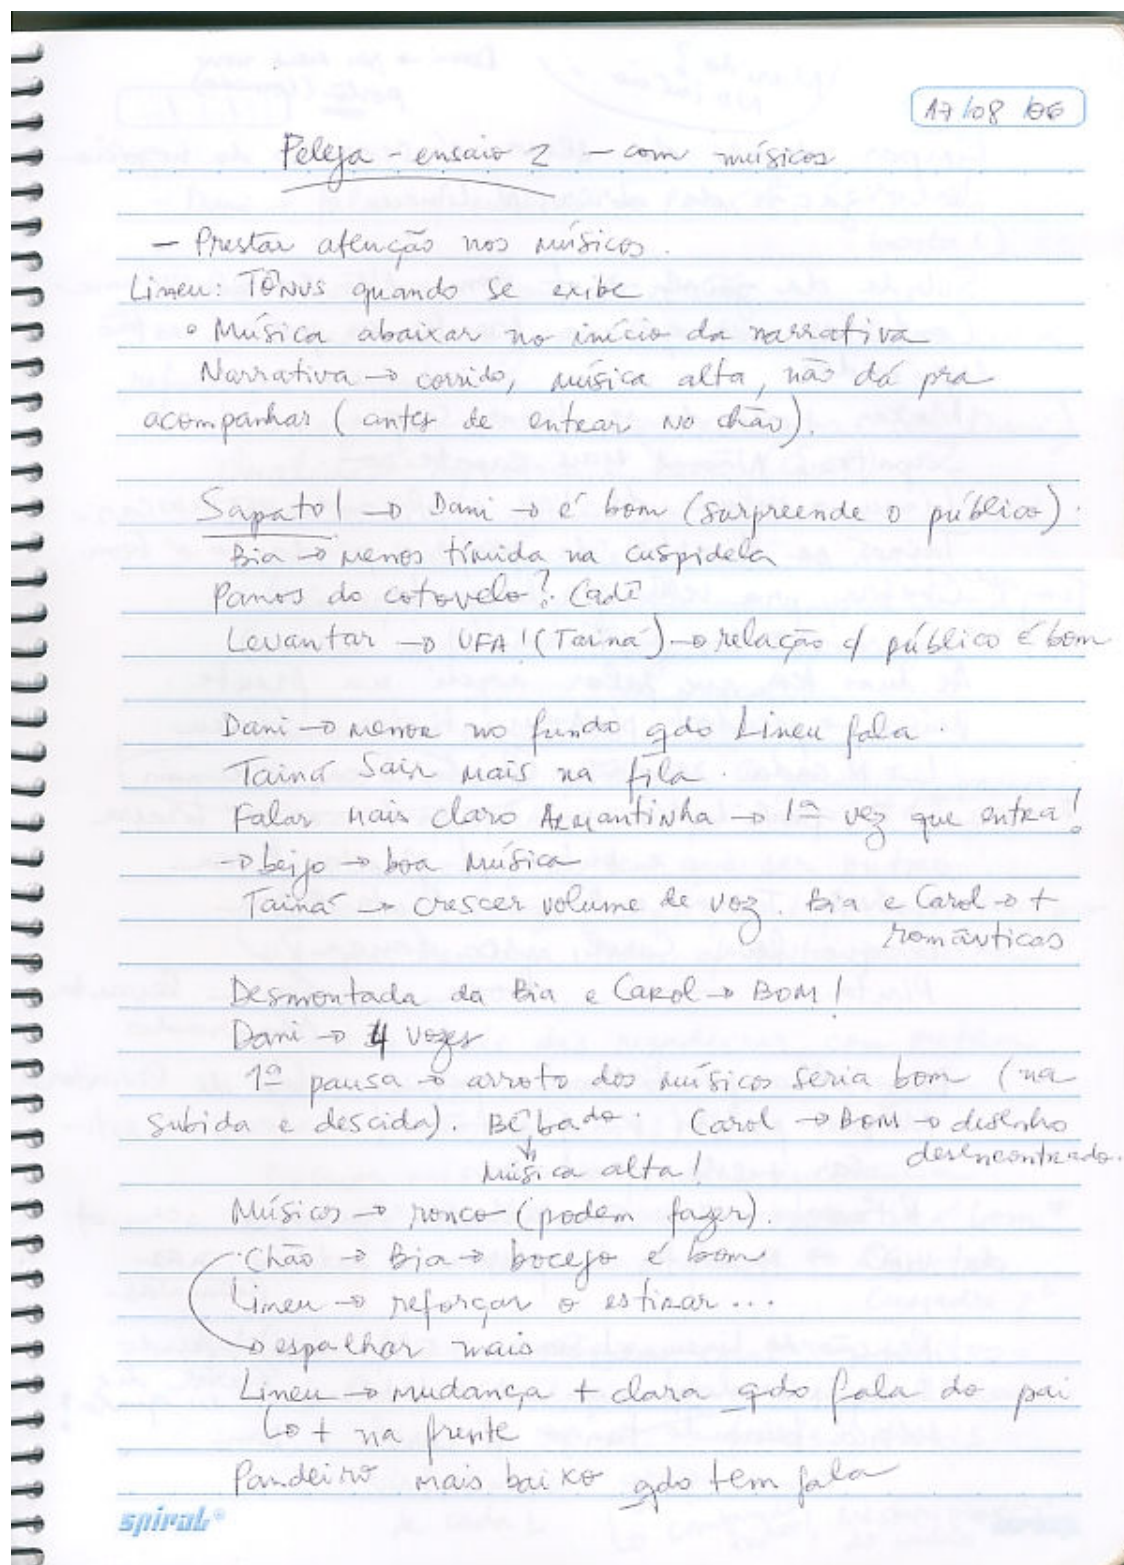 17/08/06
Peleja - ensaio 2 - com músicos
- Prestar atenção nos músicos.
Lineu: TÔNUS quando se exibe
° Música abaixar no início da narrativa
Narrativa → corrido, música alta, não dá pra
acompanhar (antes de entrar no chão).
Sapato! → Dani → é bom (surpreende o público).
Bia → menos tímida na cuspidela
Panos do cotovelo? Cadê
Levantar → UFA! (Tainá) → relação c/ público é bom
Dani → menor no fundo qdo Lineu fala.
Tainá Sair mais na fila.
Falar mais claro Armantinha → 1ª vez que entra!
→ beijo → boa música
Tainá → crescer volume de voz. Bia e Carol → +
românticas
Desmontada da Bia e Carol → BOM!
Dani → 4 vozes
1ª pausa → arroto dos músicos seria bom (na
subida e descida). Bêbado. Carol → BOM → desenho
desencontrado.
Música alta!
Músicos → ronco (podem fazer).
Chão → Bia → bocejo é bom
Lineu → reforçar o estirar...
→ espalhar mais
Lineu → mudança + clara qdo fala do pai
↳ + na frente
Pandeiro mais baixo qdo tem fala
spiral®